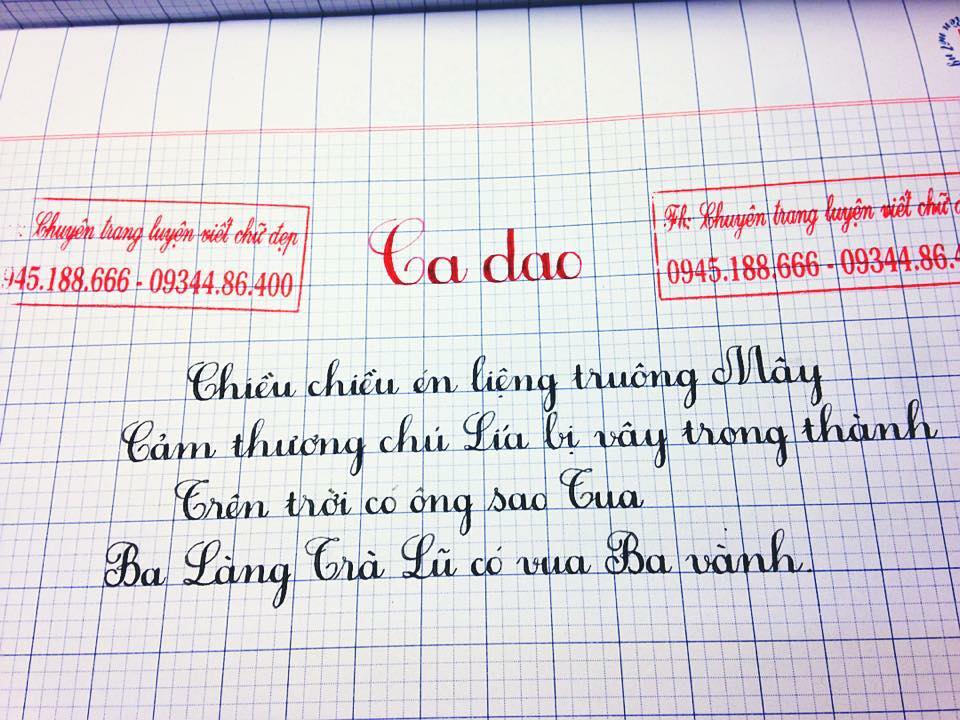 Chuyên trang luyện viết chữ đẹp
945.188.666 - 09344.86.400
Ca dao
Fk: Chuyên trang luyện viết chữ
0945.188.666 - 09344.86.
Chiều chiều én liệng truông Mây
Cảm thương chú Lía bị vây trong thành
Trên trời có ông sao Tua
Ba Làng Trà Lũ có vua Ba vành.